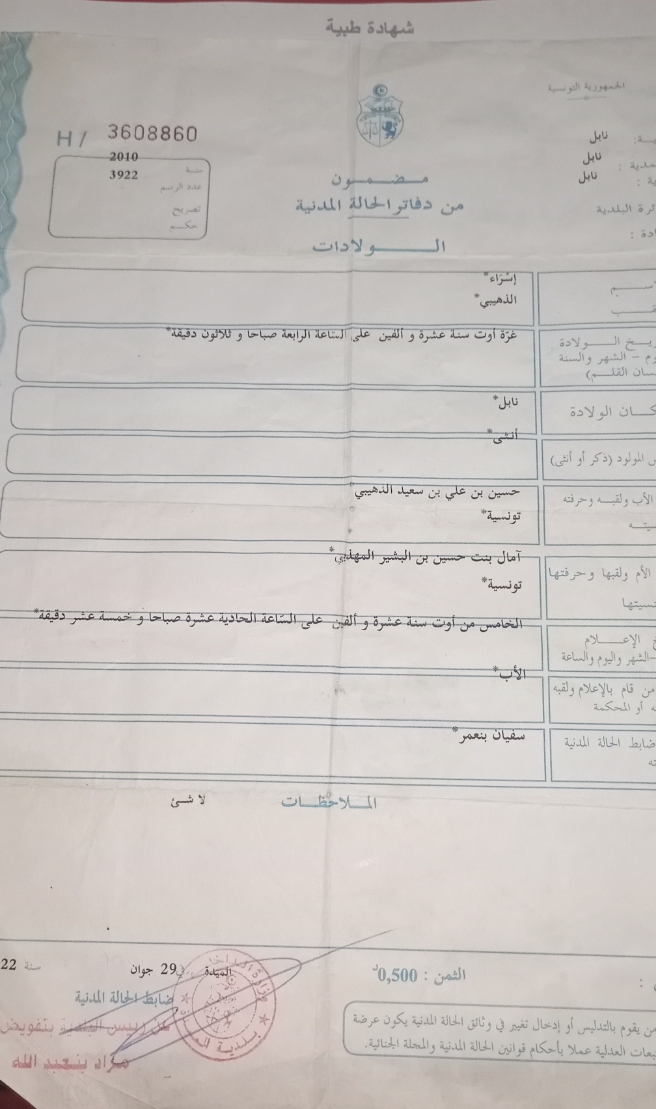 شهادة طبية
الجمهورية التونسية
H/ 3608860
نابل
نابل
نابل
2010 سنة
3922 عدد الرسم
تصريح
حكم
مضمون
من دفاتر الحالة المدنية
الولادات
البلدية
إسْرَاء*
الذهيبي*
الولادة
غرّة أوت سنة عشرة و ألفين على الساعة الرابعة صباحا و ثلاثون دقيقة*
الشهر والسنة
القلم)
الولادة
نابل*
المولود (ذكر أو أنثى)
أنثى*
الأب ولقبه وحرفته
حسين بن علي بن سعيد الذهيبي*
تونسية*
*
الأم ولقبها وحرفتها
آمال بنت حسين بن البشير المهذبي*
تونسية*
الإعلام
الخامس من أوت سنة عشرة و ألفين على السّاعة الحادية عشرة صباحا و خمسة عشر دقيقة*
الشهر واليوم والساعة
من قام بالإعلام ولقبه
الأب*
أو المحكمة
ضابط الحالة المدنية
سفيان بنعمر*
الملاحظات
لا شئ
الثمن : 0,500د
الميدة في 29 جوان سنة 22
ضابط الحالة المدنية
عن رئيس البلدية بتفويض
مراد بنعبد الله
من يقوم بالتدليس أو إدخال تغيير في وثائق الحالة المدنية يكون عرضة
العدلية عملا بأحكام قوانين الحالة المدنية والمجلة الجنائية.